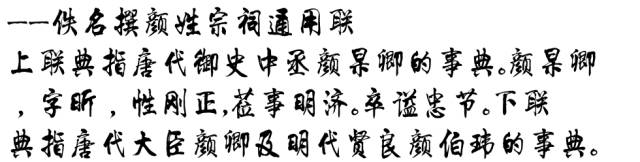 ——佚名撰颜姓宗祠通用联
上联典指唐代御史中丞颜杲卿的事典。颜杲卿
，字昕，性刚正,莅事明济。卒谥忠节。下联
典指唐代大臣颜卿及明代贤良颜伯玮的事典。